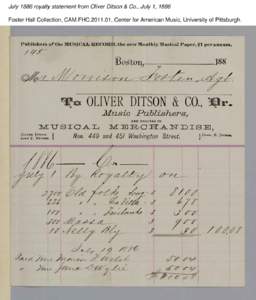 July 1886 royalty statement from Oliver Ditson & Co., July 1, 1886
Foster Hall Collection, CAM.FHC.2011.01, Center for American Music, University of Pittsburgh.
Publishers of the MUSICAL RECORD, the new Monthly Musical Paper, $1 per annum.
148
Boston, 188
Mr Morrison Foster Agt
To OLIVER DITSON & CO., Dr.
Music Publishers,
AND DEALERS IN
MUSICAL MERCHANDISE,
Nos. 449 and 451 Washington Street.
1886 Cr
July 1 By Royalty on
2700 Old folks Song 3 81 00
226 3 6 78
100 3 3 00
300 Massa 3 9 00
10 Nelly Bly 3 30 100 08
July 19 1886
50 04
50 04